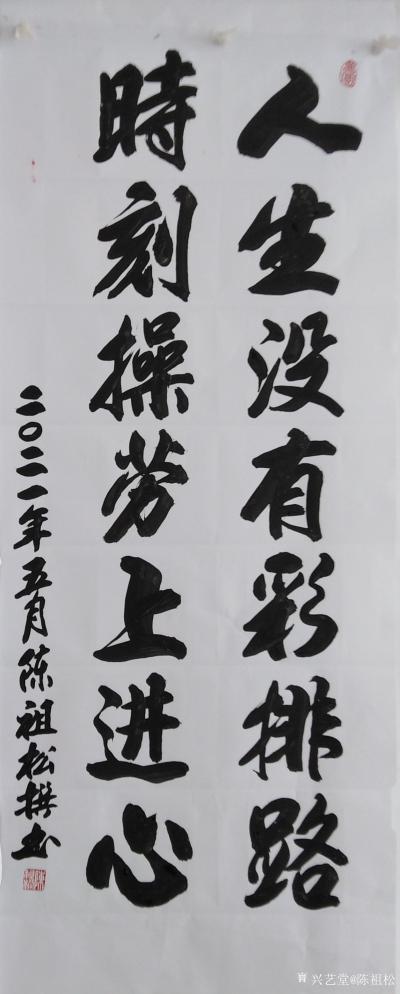 人生没有彩排路
時刻操劳上进心
二〇二一年五月陈祖松撰书
兴艺堂@陈祖松